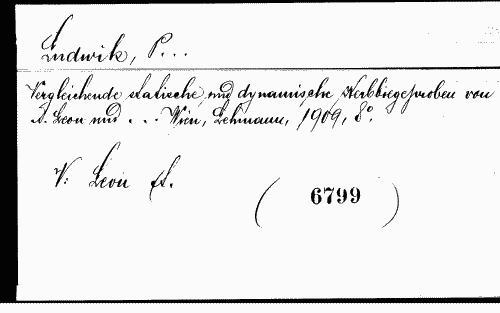 Ludwik, P...
Vergleichende statische und dynamische Kerbbiegeproben von
A. Leon und ... Wien, Lehmann, 1909, 8º.
V: Leon A.
(6799)